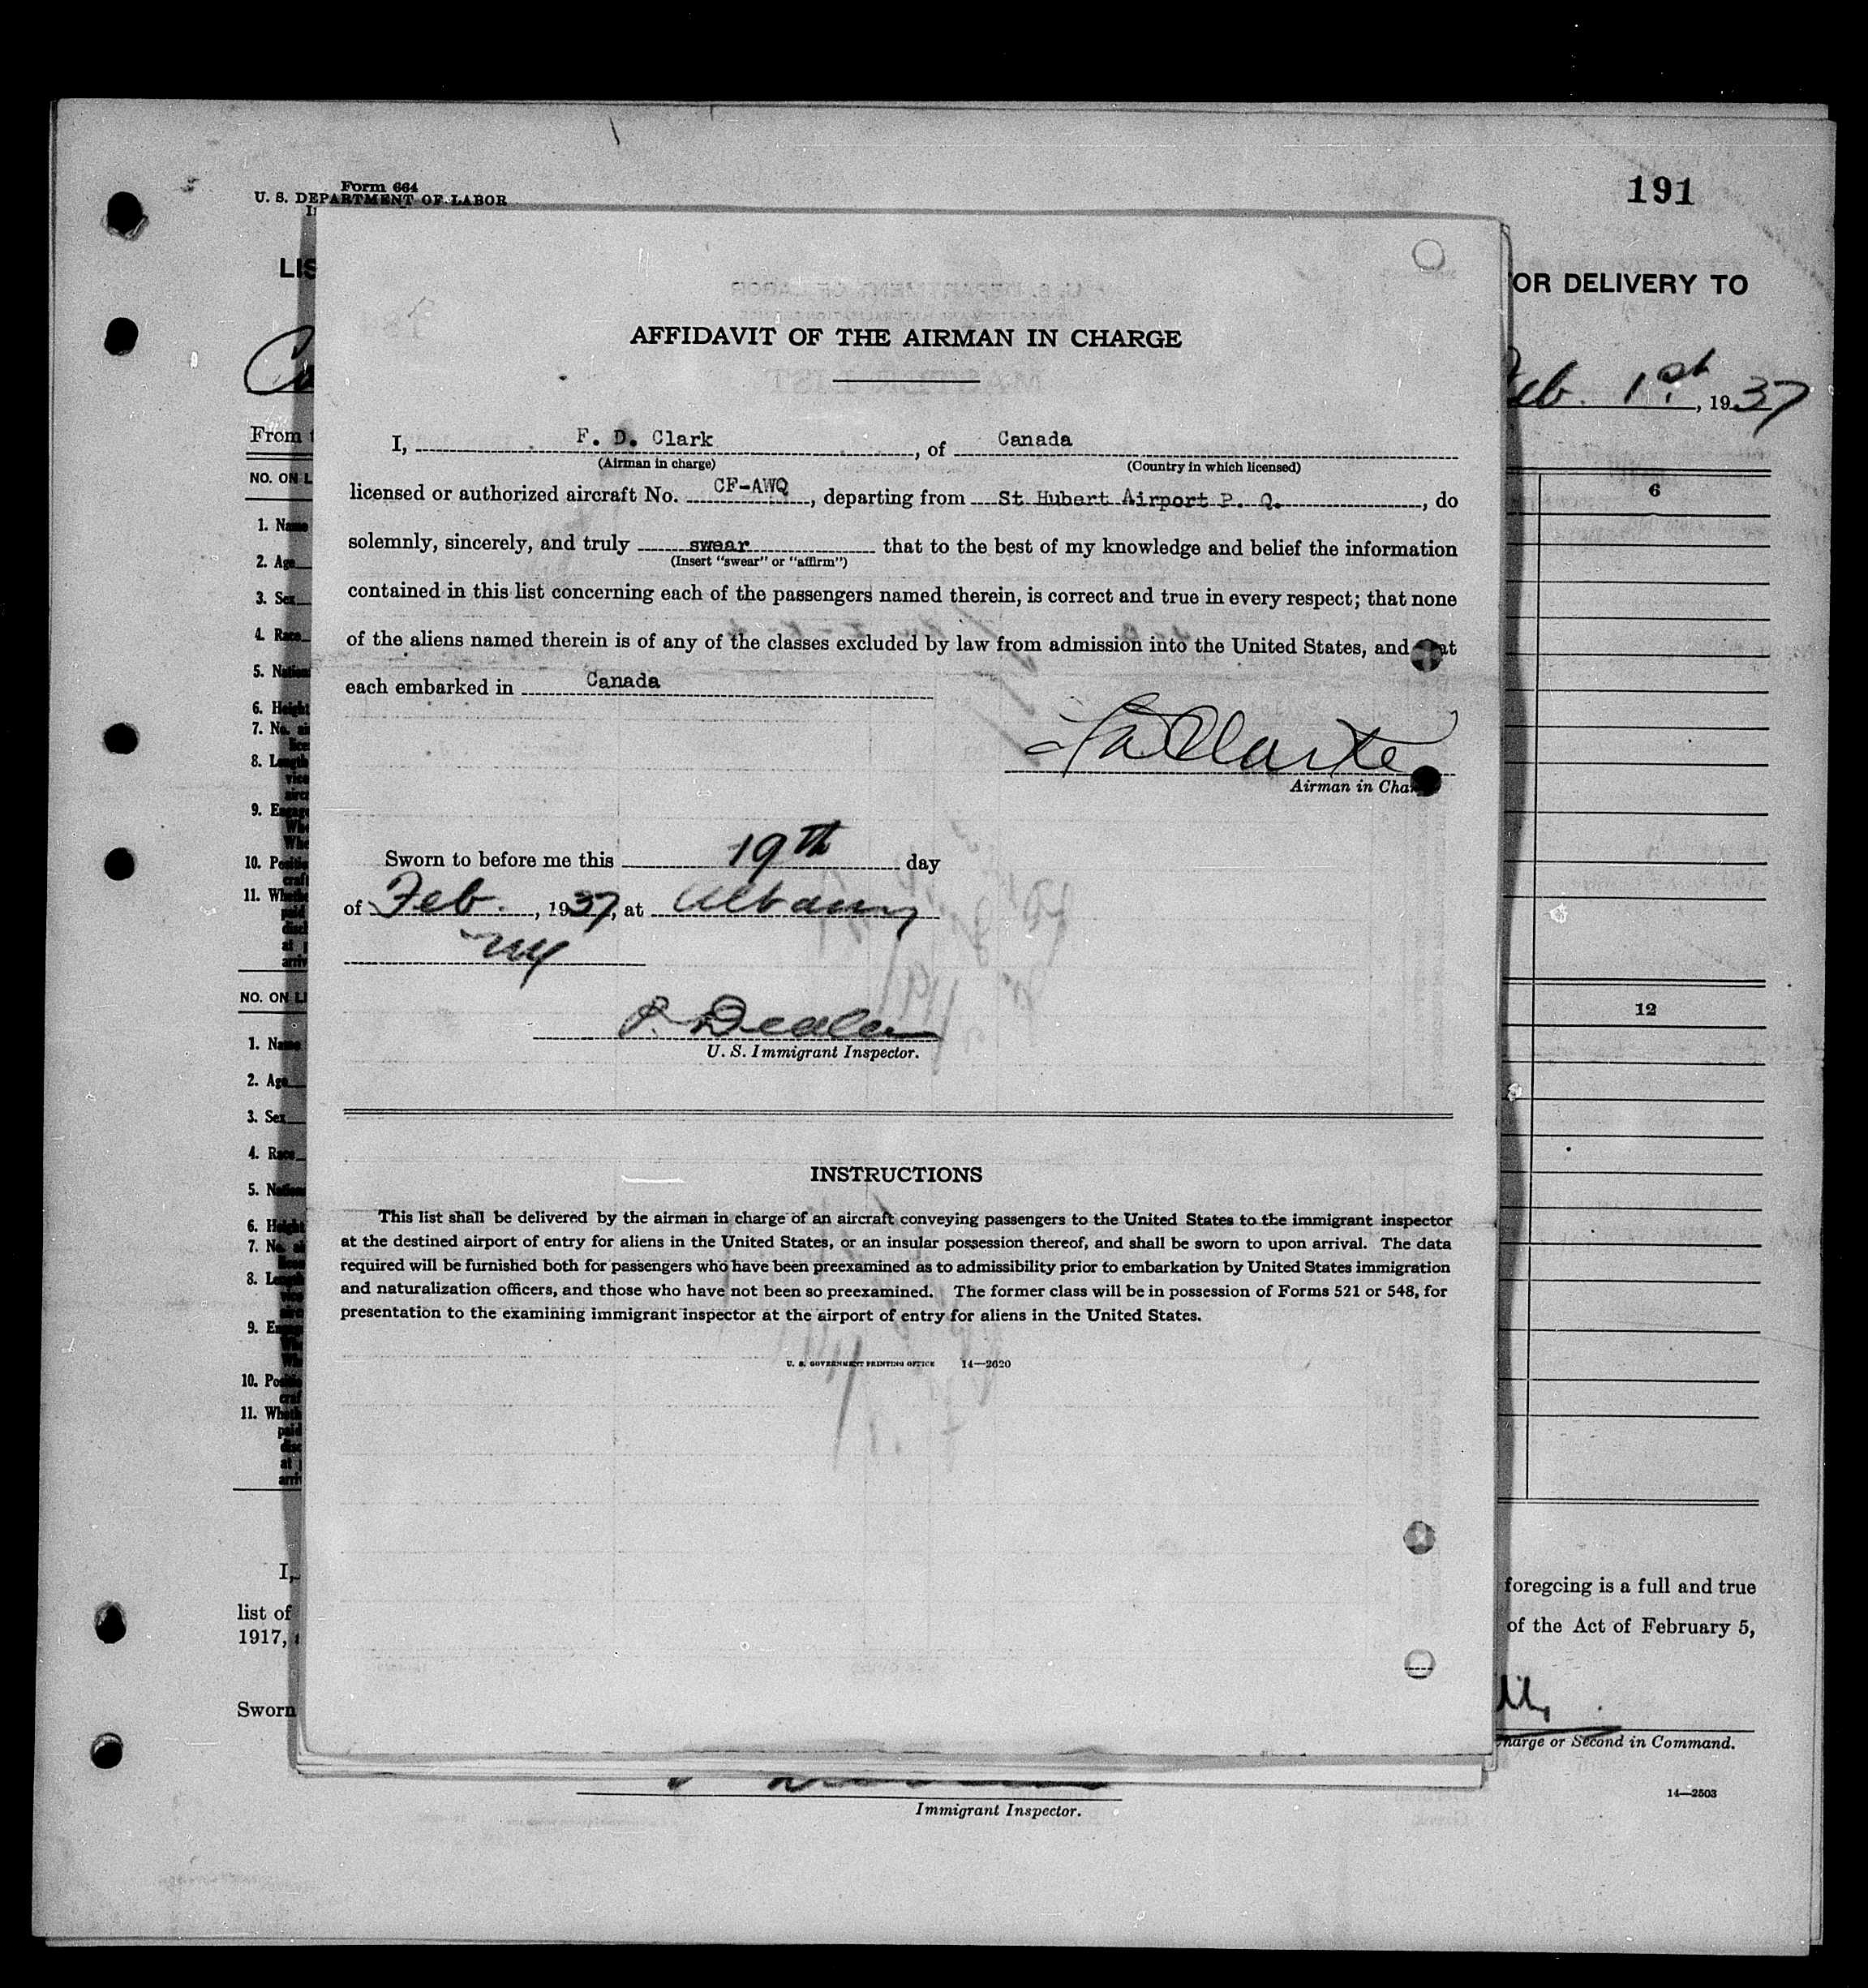 Form 664
U. S. DEPARTMENT OF LABOR
191
LIS
OR DELIVERY TO
Feb. 1st, 1937
From
NO. ON L
6
1. Name
2. Age
3. Sex
4. Race
5. Nation
6. Height
7. No. ai
lice
8. Length
vice
airc
9. Engage
Whe
Whe
10. Positio
craft
11. Whethe
paid
disc
at
arriv
NO. ON LI
12
1. Name
2. Age
3. Sex
4. Race
5. Nation
6. Height
7. No. ai
lice
8. Length
vice
airc
9. En
10. Positio
craf
11. Wheth
paid
disc
at
arri
I,
foregoing is a full and true
list of
of the Act of February 5,
1917,
Sworn
Charge or Second in Command.
14—2503
Immigrant Inspector.
AFFIDAVIT OF THE AIRMAN IN CHARGE
I, F. D. Clark, of Canada
(Airman in charge) (Country in which licensed)
licensed or authorized aircraft No. CF-AWQ, departing from St Hubert Airport P. Q., do
solemnly, sincerely, and truly swear that to the best of my knowledge and belief the information
(Insert "swear" or "affirm")
contained in this list concerning each of the passengers named therein, is correct and true in every respect; that none
of the aliens named therein is of any of the classes excluded by law from admission into the United States, and that
each embarked in Canada
Clarke
Airman in Cha
Sworn to before me this 19th day
of Feb., 1937, at Albany
NY
U. S. Immigrant Inspector.
INSTRUCTIONS
This list shall be delivered by the airman in charge of an aircraft conveying passengers to the United States to the immigrant inspector
at the destined airport of entry for aliens in the United States, or an insular possession thereof, and shall be sworn to upon arrival. The data
required will be furnished both for passengers who have been preexamined as to admissibility prior to embarkation by United States immigration
and naturalization officers, and those who have not been so preexamined. The former class will be in possession of Forms 521 or 548, for
presentation to the examining immigrant inspector at the airport of entry for aliens in the United States.
U. S. GOVERNMENT PRINTING OFFICE 14—2620